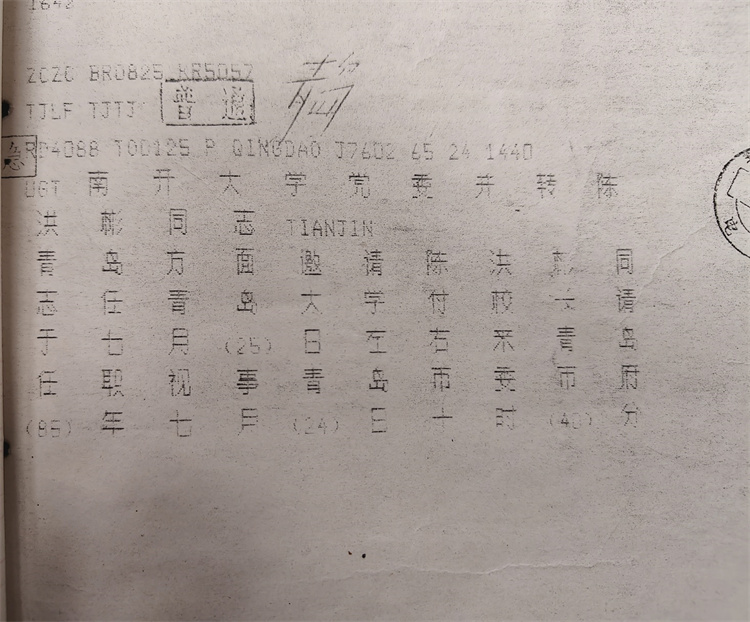 1642
ZCZC BR0825 RR5057
TJLF TJTJ 普 递
急
RP4088 TOD125 P QINGDAO J7602 65 24 1440
UGT 南开大学党委并转陈
洪彬同志 TIANJIN
青岛方面邀请陈洪彬同
志任青岛大学付校长请
于七月(25)日左右来青岛
任职视事青岛市委市府
(85)年七月(24)日十时(40)分